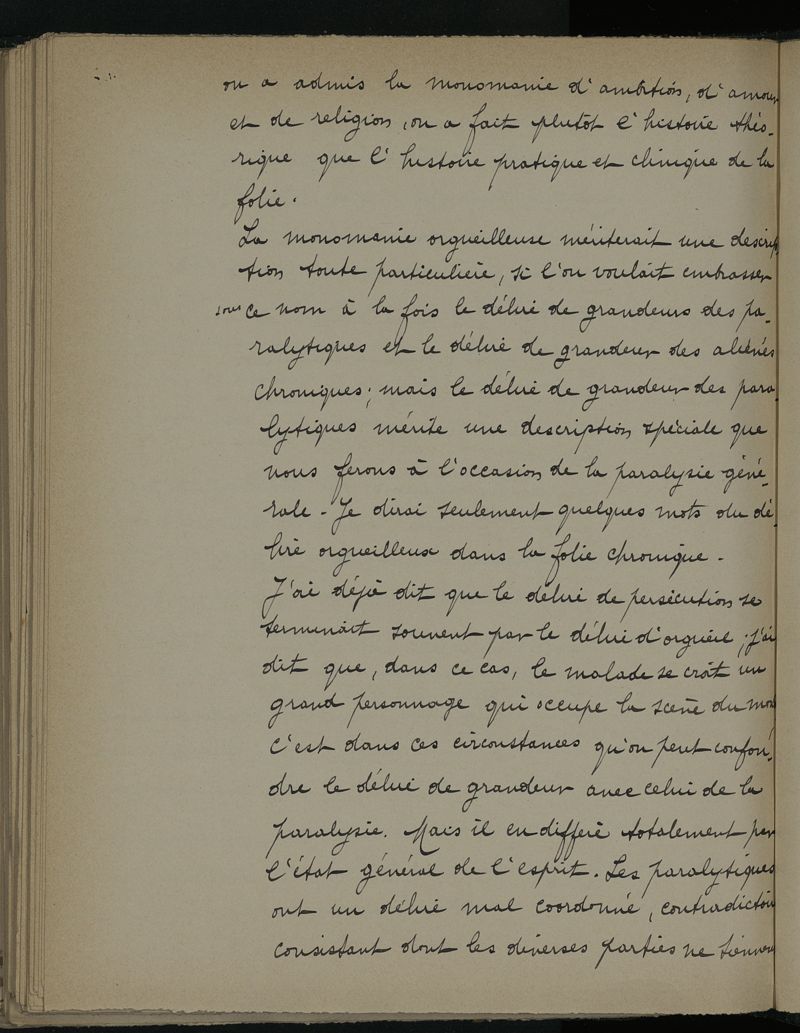 on a admis la monomanie d'ambition, d'amour
et de religion, on a fait plutôt l'histoire théo-
rique que l'histoire pratique et clinique de la
folie.
La monomanie orgueilleuse mériterait une descrip
tion toute particulière, si l'on voulait embrasser
sous ce nom à la fois le délire de grandeurs des pa-
ralytiques et le délire de grandeur des aliénés
chroniques; mais le délire de grandeur des para
lytiques mérite une description spéciale que
nous ferons à l'occasion de la paralysie géné-
rale - Je dirai seulement quelques mots du dé-
lire orgueilleux dans la folie chronique -
J'ai déjà dit que le délire de persécution se
terminait souvent par le délire d'orgueil; j'ai
dit que, dans ce cas, le malade se croît un
grand personnage qui occupe la scène du mon
C'est dans ces circonstances qu'on peut confon-
dre le délire de grandeur avec celui de la
paralysie. Mais il en diffère totalement par
l'état général de l'esprit. Les paralytiques
ont un délire mal coordonné, contradictoir
consistant dont les diverses parties ne tiennen